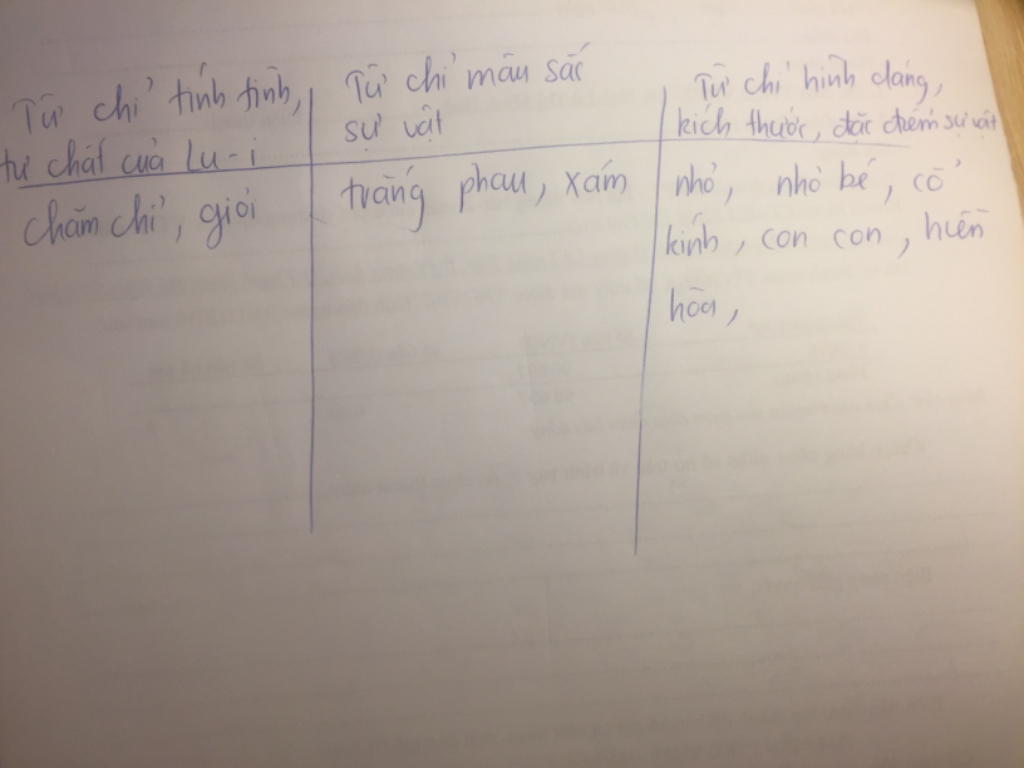 Từ chỉ tính tình,
tư chất của Lu-i
chăm chỉ, giỏi
Từ chỉ màu sắc
sự vật
trắng phau, xám
Từ chỉ hình dáng,
kích thước, đặc điểm sự vật
nhỏ, nhỏ bé, cổ
kính, con con, hiền
hòa,